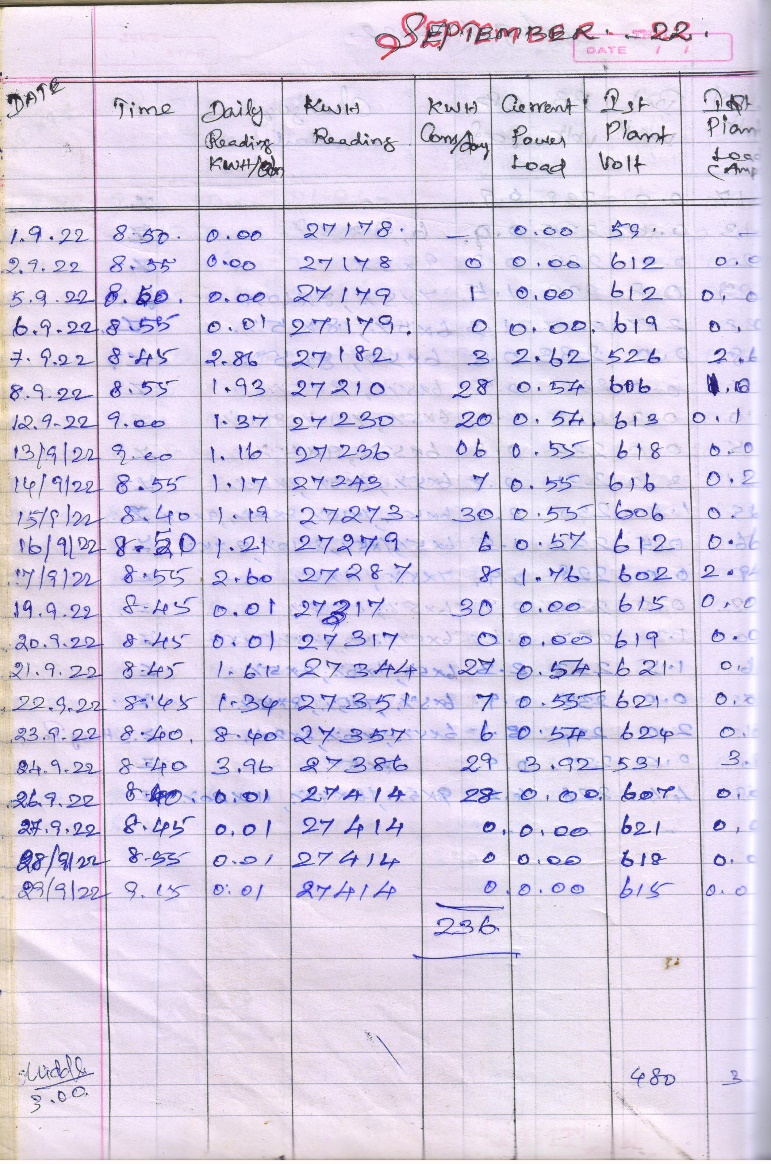 SEPTEMBER. 22.
DATE / /
DATE Time Daily Reading KWH/ KWH Reading KWH Cons/day Current Power Load Ist Plant Volt Ist Plan Loa (Amp
1.9.22 8.50. 0.00 27178. — 0.00 59. —
2.9.22 8.55 0.00 27178 0 0.00 612 0.0
5.9.22 8.50. 0.00 27179 1 0.00 612 0.0
6.9.22 8.55 0.01 27179. 0 0.00. 619 0.
7.9.22 8.45 2.86 27182 3 2.62 526 2.
8.9.22 8.55 1.93 27210 28 0.54 606
12.9.22 9.00 1.37 27230 20 0.54. 613 0.1
13/9/22 9.00 1.16 27236 06 0.55 618 0.0
14/9/22 8.55 1.17 27243 7 0.55 616 0.2
15/9/22 8.40 1.19 27273. 30 0.55 606 0.
16/9/22 8.50 1.21 27279 6 0.57 612 0.
17/9/22 8.55 2.60 27287 8 1.76 602 2.
19.9.22 8.45 0.01 27317 30 0.00 615 0.0
20.9.22 8.45 0.01 27317 0 0.00 619 0.0
21.9.22 8.45 1.61 27344 27 0.54 621 0.
22.9.22 8.45 1.34 27351 7 0.55 621 0.
23.9.22 8.40. 8.40 27357 6 0.54 624 0.
24.9.22 8.40 3.96 27386 29 3.92 531 3.
26.9.22 8.40. 0.01 27414 28 0.00. 607 0.
27.9.22 8.45 0.01 27414 0. 0.00 621 0.
28/9/22 8.55 0.01 27414 0 0.00 618 0.
29/9/22 9.15 0.01 27414 0. 0.00 615 0.0
236
480 3
3.00